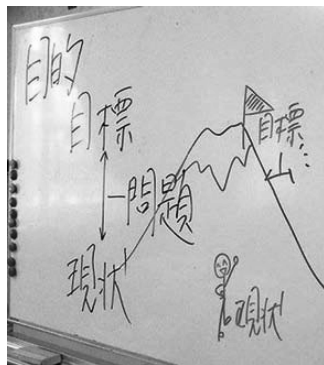 目的
目標
問題
現状
目標
山
現状